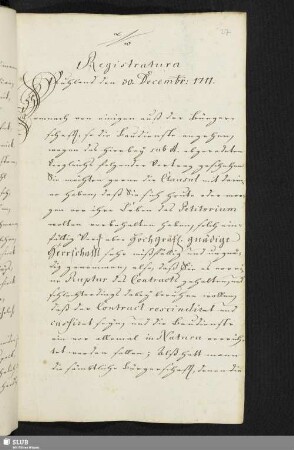 Registratura
Pühlend den 30. Decembr: 1711.
Demnach von einigen auß der Bürger-
schafft, so die Baudienste angehen,
wegen des hierbey sub A. abgeredeten
Vergleichs folgender Vortrag geschehen
Sie möchten gerne die Clausul mit darin-
ne haben, daß Sie sich heute oder mor-
gen vor ihre Leben das Petitorium
wolten vorbehalten haben, solch ein-
aber Hochgräfl. gnädige
Herrschafft sehr mißfällig und ungnä-
dig genommen, also, daß Sie es vor ei-
ne Ruptur des Contracts gehalten, und
schlechterdings dabey beruhen wollen,
daß der Contract rescindiret und
cassiret seyn, und die Baudienste
ein vor allemal in Natura verrich-
tet werden sollen; Alß hatt mann
die sämbtliche Bürgerschafft, denen die
SLUB